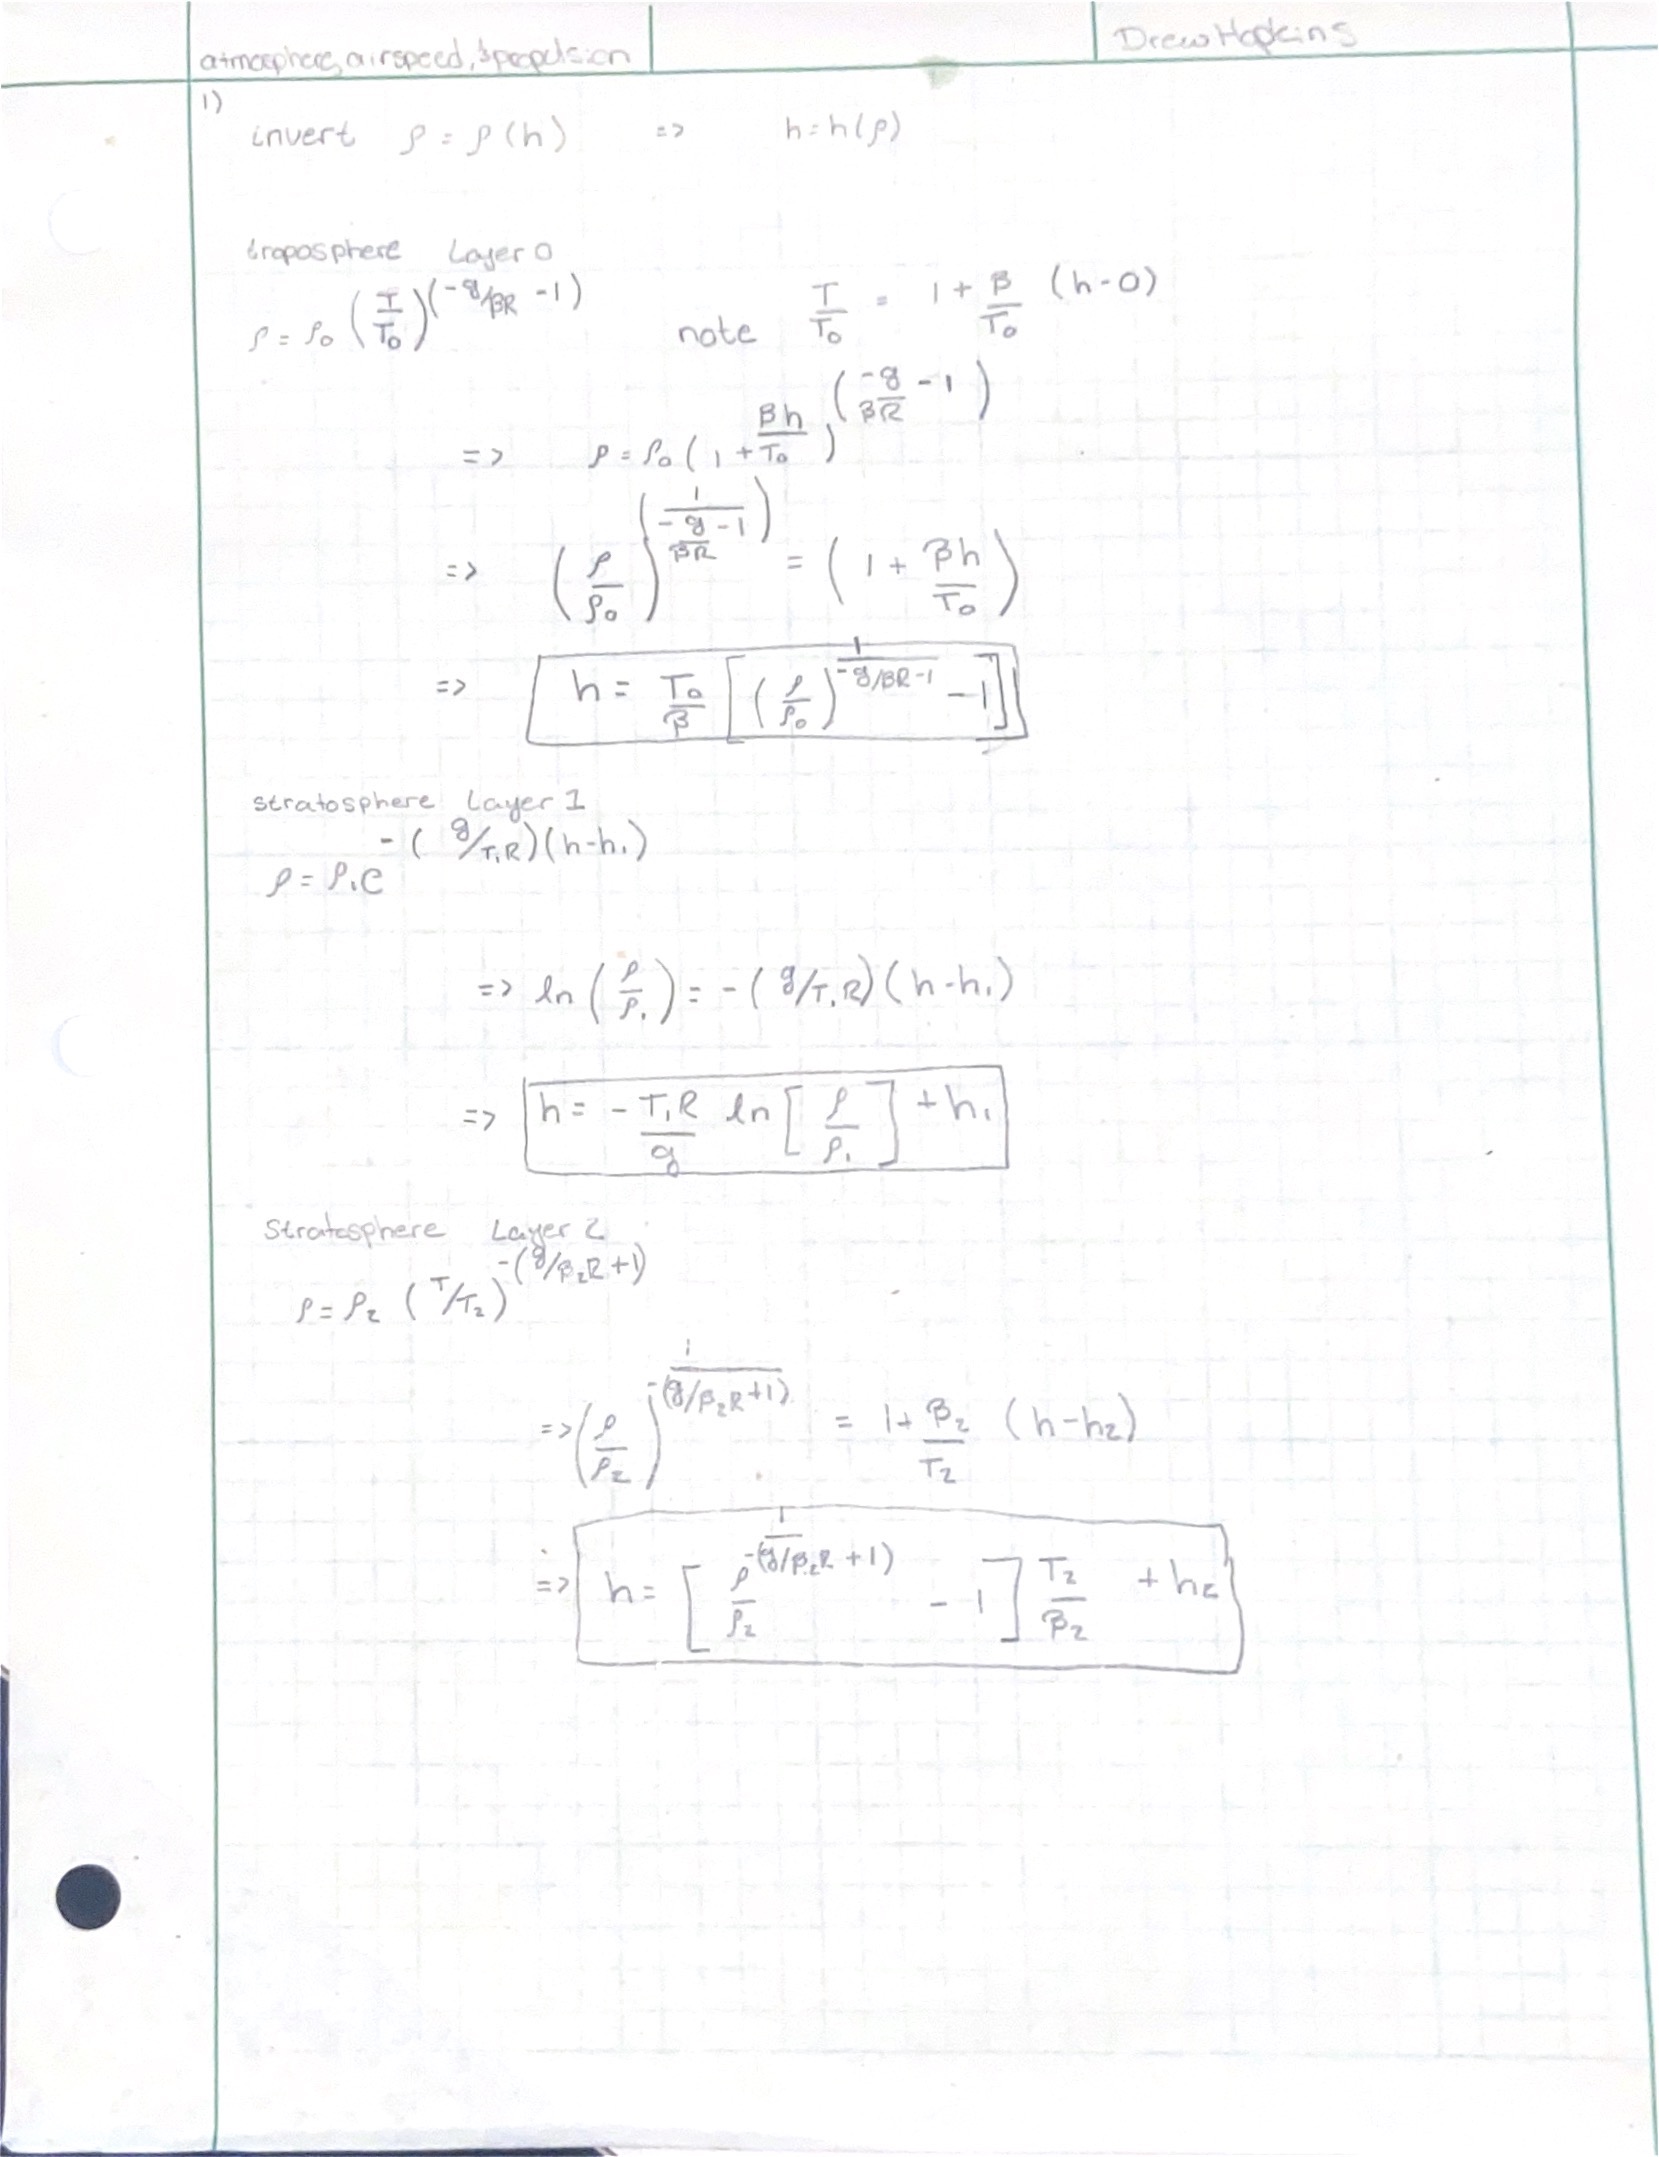 atmosphere, airspeed, & propulsion
Drew Hopkins
1)
invert ρ = ρ(h) => h = h(ρ)
troposphere Layer 0
ρ = ρ₀ (T/T₀)^(-g/βR - 1) note T/T₀ = 1 + β/T₀ (h-0)
=> ρ = ρ₀ (1 + βh/T₀)^(-g/βR - 1)
=> (ρ/ρ₀)^(1/(-g/βR - 1)) = (1 + βh/T₀)
=> h = T₀/β [(ρ/ρ₀)^(1/(-g/βR-1)) - 1]
stratosphere Layer 1
ρ = ρ₁e^(-(g/T₁R)(h-h₁))
=> ln(ρ/ρ₁) = -(g/T₁R)(h-h₁)
=> h = - T₁R/g ln[ρ/ρ₁] + h₁
Stratosphere Layer 2
ρ = ρ₂ (T/T₂)^(-(g/β₂R+1))
=> (ρ/ρ₂)^(1/(-(g/β₂R+1))) = 1 + β₂/T₂ (h-h₂)
=> h = [ρ/ρ₂^(1/(-(g/β₂R+1))) - 1] T₂/β₂ + h₂